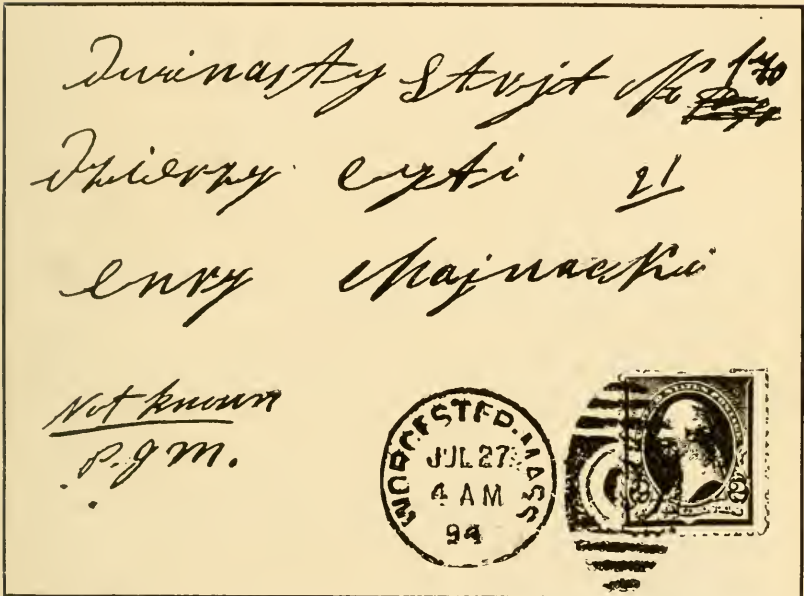 Dwinasty Strjt No 170
Dzierzy cyti 21
enry Chajnacki
Not known
P.G.M.
WORCESTER.MASS
JUL 27
4 AM
94